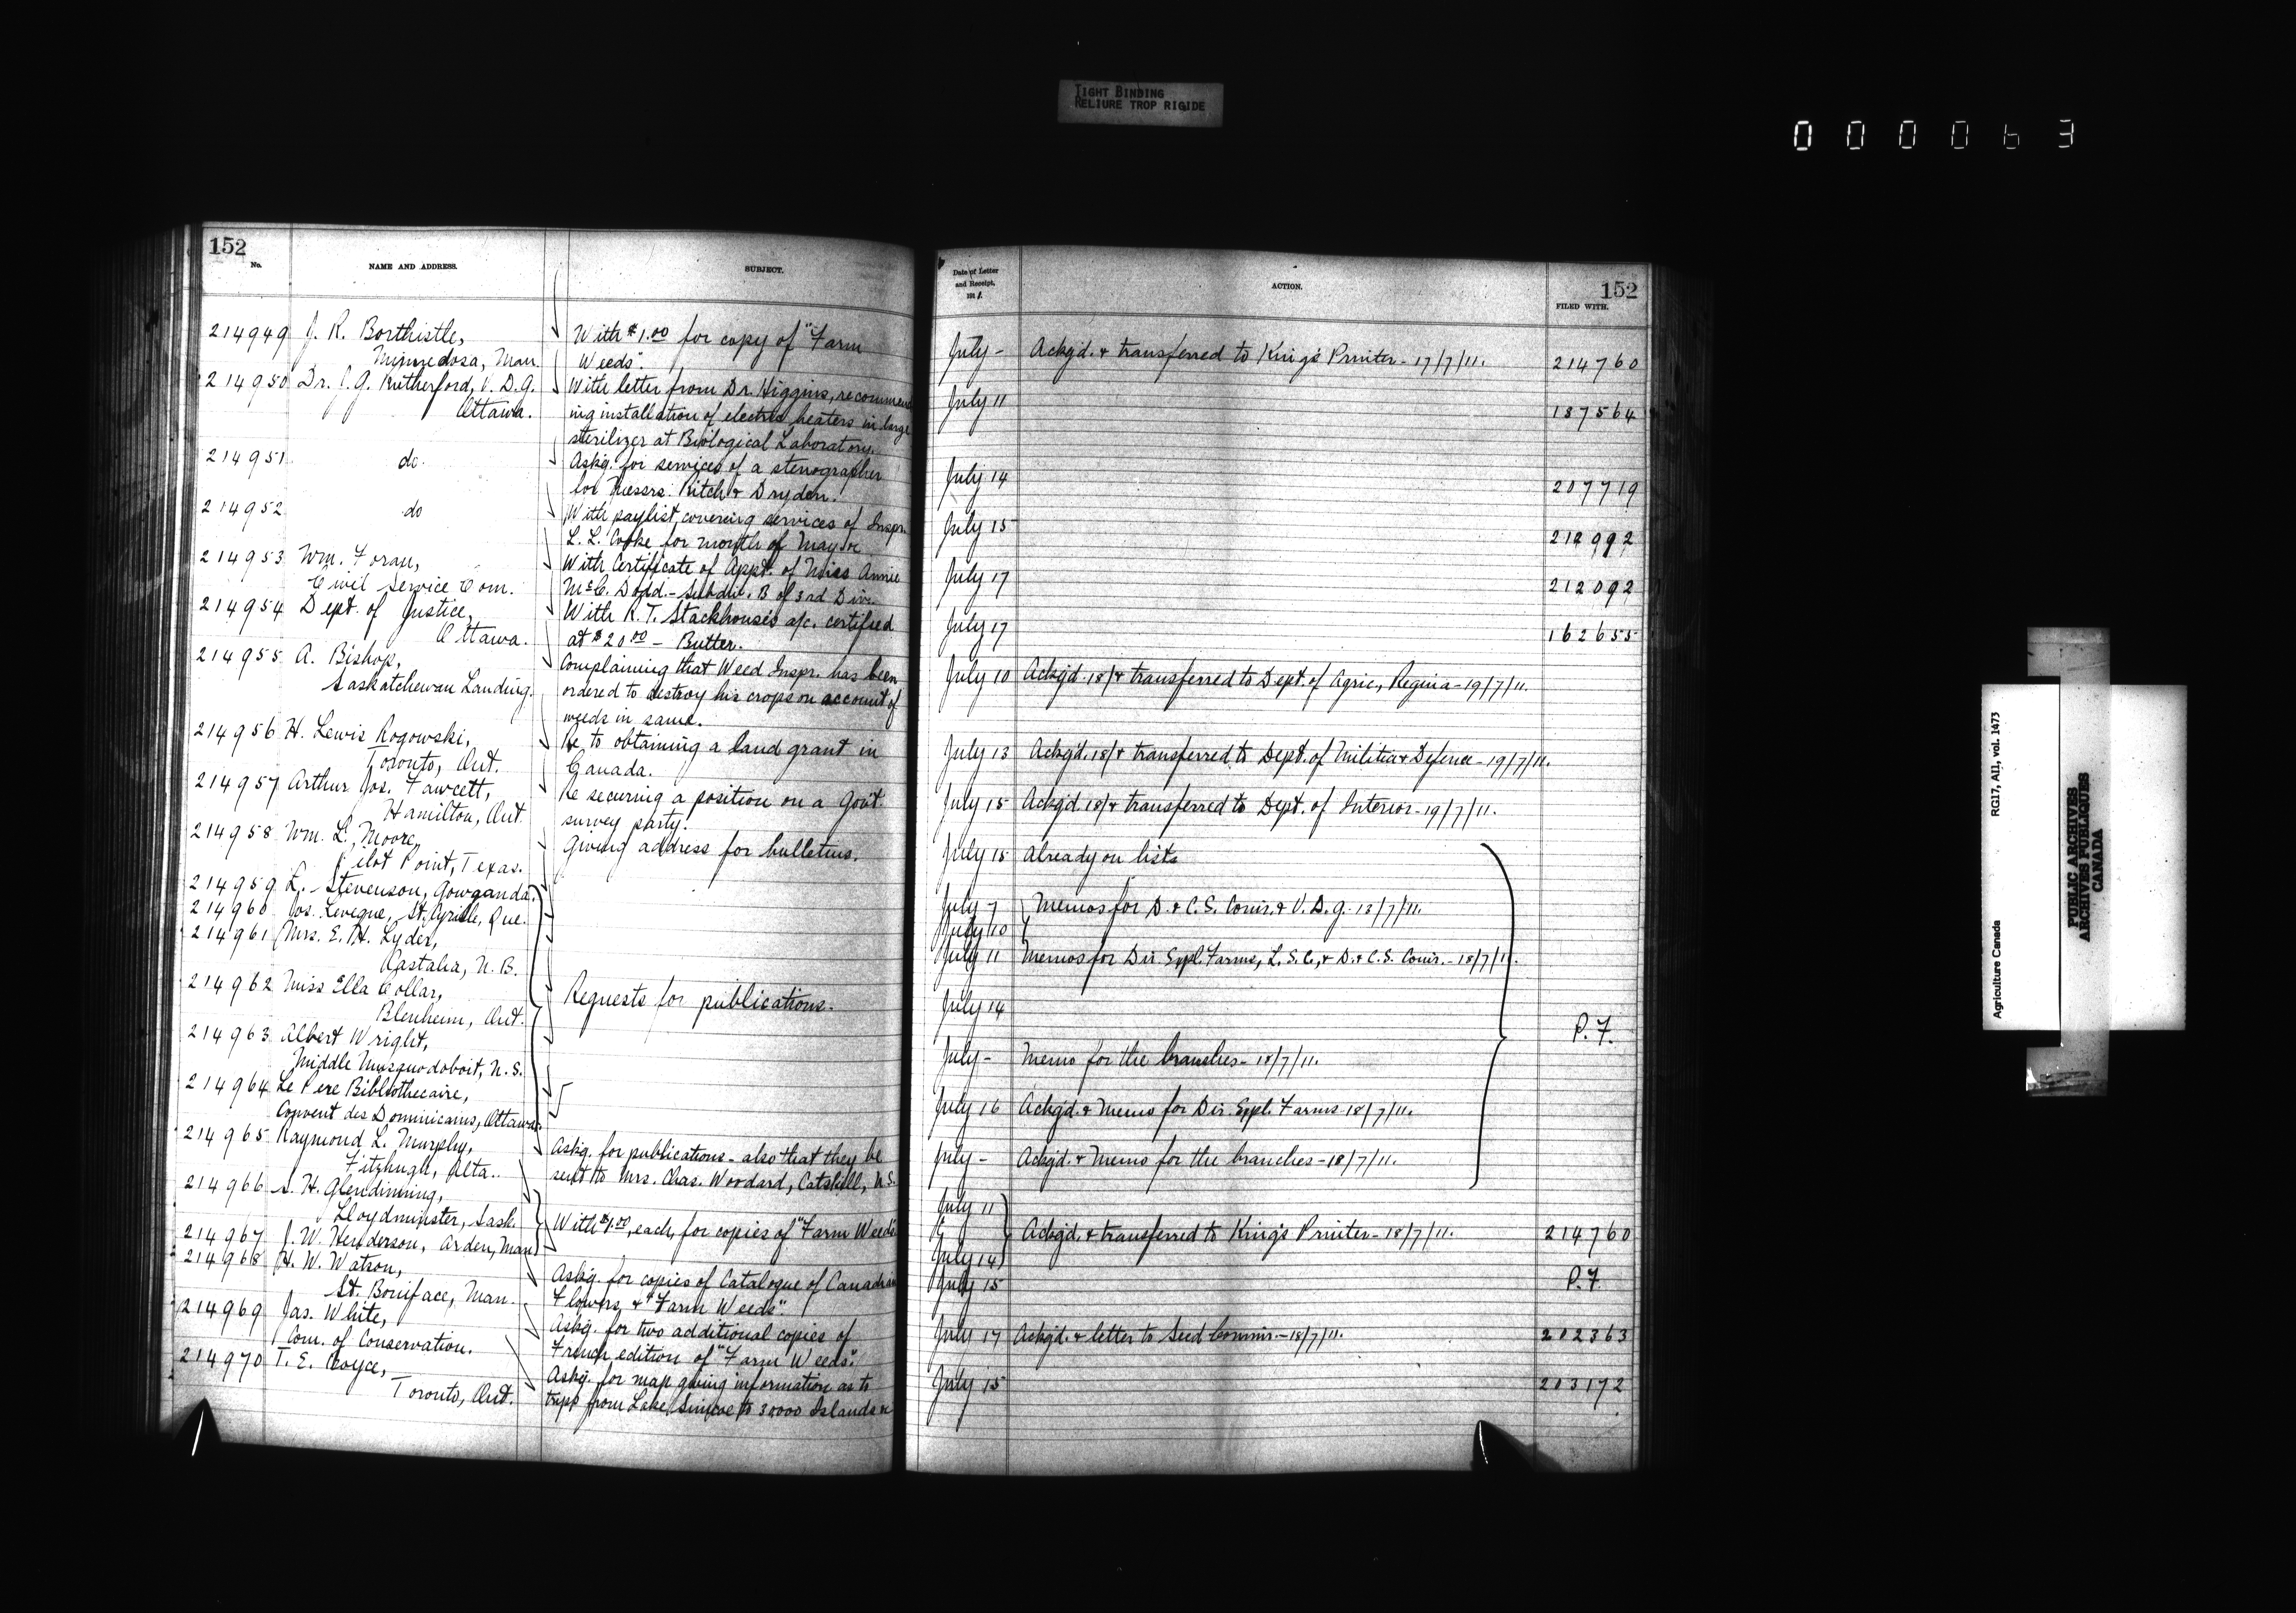 TIGHT BINDING
RELIURE TROP RIGIDE
000063
152
No.
NAME AND ADDRESS.
SUBJECT.
214949 J. R. Borthistle,
Minnedosa, Man.
With $1.00 for copy of "Farm
Weeds".
214950 Dr. J. G. Rutherford, V. D. G.
Ottawa.
With letter from Dr. Higgins, recommend
ing installation of electric heaters in large
sterilizer at Biological Laboratory.
214951 do.
Askg. for services of a stenographer
for Messrs. Ritch & Dryden.
214952 do
With paylist, covering services of Inspr.
L. L. Cooke for month of May
214953 Wm. Foran,
Civil Service Com.
With Certificate of Appt. of Miss Annie
McC. Dodd - Subdiv. B of 3rd Div.
214954 Dept. of Justice,
Ottawa.
With R. T. Stackhouse's a/c. certified
at $20.00 - Butter.
214955 A. Bishop,
Saskatchewan Landing.
Complaining that Weed Inspr. has been
ordered to destroy his crops on account of
weeds in same.
214956 H. Lewis Rogowski,
Toronto, Ont.
Re to obtaining a land grant in
Canada.
214957 Arthur Jos. Fawcett,
Hamilton, Ont.
Re securing a position on a Gov't.
survey party.
214958 Wm. L. Moore,
Pilot Point, Texas.
Giving address for bulletins.
214959 L. Stevenson, Gowganda.
214960 Jos. Leveque, St. Cyrille, Que.
214961 Mrs. E. H. Lyder,
Castalia, N. B.
214962 Miss Ella Collar,
Blenheim, Ont.
Requests for publications.
214963 Albert Wright,
Middle Musquodoboit, N. S.
214964 Le Pere Bibliothecaire,
Convent des Dominicains, Ottawa.
214965 Raymond L. Murphy,
Fitzhugh, Alta.
Askg. for publications - also that they be
sent to Mrs. Chas. Woodard, Catskill,
214966 H. Glendinning,
Lloydminster, Sask.
214967 J. W. Henderson, Arden, Man.
With $1.00, each, for copies of "Farm Weeds"
214968 H. W. Watson,
St. Boniface, Man.
Askg. for copies of Catalogue of Canadian
Flowers & "Farm Weeds".
214969 Jas. White,
Com. of Conservation.
Askg. for two additional copies of
French edition of "Farm Weeds".
214970 T. E. Royce,
Toronto, Ont.
Askg. for map giving information as to
tripp from Lake Simcoe to 30000 Islands
Date of Letter
and Receipt,
1911.
ACTION.
152
FILED WITH.
July - Ackg'd. & transferred to King's Printer - 17/7/11. 214760
July 11 187564
July 14 207719
July 15 212992
July 17 212092
July 17 162655
July 10 Ackg'd. 18/ & transferred to Dept. of Agric., Regina - 19/7/11.
July 13 Ackg'd. 18/ & transferred to Dept. of Militia & Defence - 19/7/11.
July 15 Ackg'd. 18/ & transferred to Dept. of Interior - 19/7/11.
July 15 Already on lists
July 7 Memos for D. & C. S. Comr. & V. D. G. 18/7/11.
July 10
July 11 Memos for Dir. Expl. Farms, L. S. C., & D. & C. S. Comr. - 18/7/11.
July 14
P. F.
July - Memo for the branches - 18/7/11.
July 16 Ackg'd. & Memo for Dir. Expl. Farms - 18/7/11.
July - Ackg'd. & Memo for the branches - 18/7/11.
July 11
& Ackg'd. & transferred to King's Printer - 18/7/11. 214760
July 14
July 15 P. F.
July 17 Ackg'd. & letter to Seed Commr. - 18/7/11. 202363
July 15 203172
Agriculture Canada
RG17, AII, vol. 1473
PUBLIC ARCHIVES
ARCHIVES PUBLIQUES
CANADA